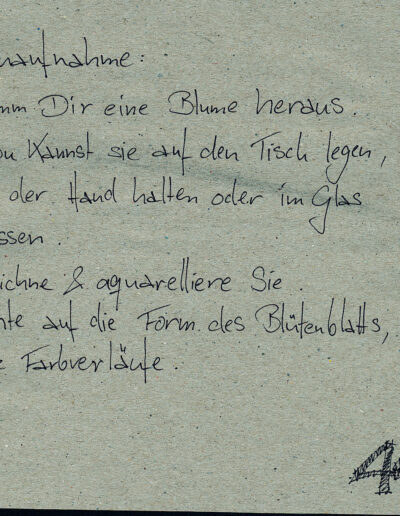 naufnahme:
mm Dir eine Blume heraus.
ou Kannst sie auf den Tisch legen,
der Hand halten oder im Glas
ssen.
ichne & aquarelliere Sie.
hte auf die Form des Blütenblatts,
e Farbverläufe.
4